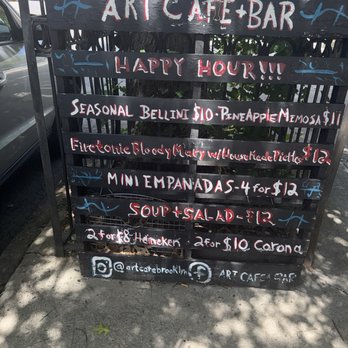 ART CAFE+BAR
HAPPY HOUR!!!
SEASONAL BELLINI $10 · PENEAPPLE MEMOSA $11
Bloody Mary w/ HouseMade Pickle $12
MINI EMPANADAS-4 for $12
SOUP + SALAD - $12
2 for $8 Heneken · 2 for $10 Corona
@artcafebrooklyn ART CAFE+BAR